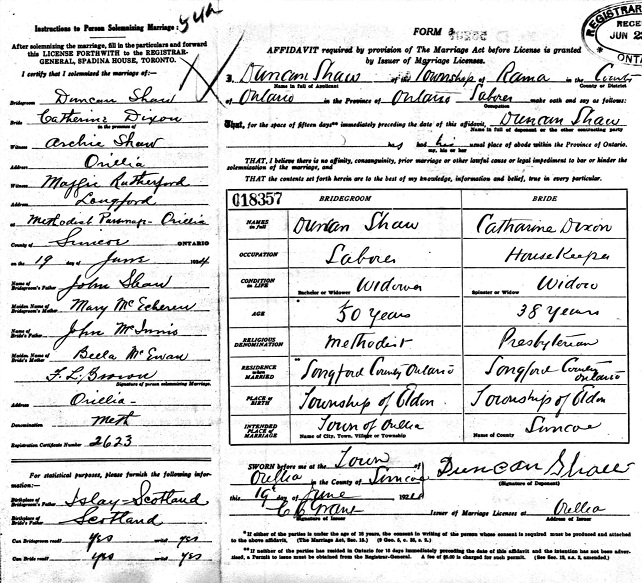 Instructions to Person Solemnizing Marriage:
After solemnizing the marriage, fill in the particulars and forward
this LICENSE FORTHWITH to the REGISTRAR-
GENERAL, SPADINA HOUSE, TORONTO.
I certify that I solemnized the marriage of:—
Bridegroom Duncan Shaw
Bride Catharine Dixon
in the presence of
Witness Archie Shaw
Address Orillia
Witness Maggie Rutherford
Address Longford
at Methodist Parsonage Orillia
County of Simcoe ONTARIO
on the 19 day of June 1924
Name of Bridegroom's Father John Shaw
Maiden Name of Bridegroom's Mother Mary McEchern
Name of Bride's Father John McInnis
Maiden Name of Bride's Mother Bella McEwan
F. L. Brown
Signature of person solemnizing Marriage.
Address Orillia
Denomination Meth
Registration Certificate Number 2623
For statistical purposes, please furnish the following infor-
mation:—
Birthplace of Bridegroom's Father Islay - Scotland
Birthplace of Bride's Father Scotland
Can Bridegroom read? yes write? yes
Can Bride read? yes write? yes
FORM
REGISTRAR
RECE
JUN 23
ONTA
AFFIDAVIT required by provision of The Marriage Act before License is granted
by Issuer of Marriage Licenses.
I, Duncan Shaw of the Township of Rama in the County
Name in full of Applicant County or District
of Ontario in the Province of Ontario Laborer make oath and say as follows:
Occupation
That, for the space of fifteen days** immediately preceding the date of this affidavit, Duncan Shaw
Name in full of deponent or the other contracting party
has had his usual place of abode within the Province of Ontario.
my, his or her
THAT, I believe there is no affinity, consanguinity, prior marriage or other lawful cause or legal impediment to bar or hinder the
solemnization of the marriage, and
THAT the contents set forth herein are to the best of my knowledge, information and belief, true in every particular.
018357 BRIDEGROOM BRIDE
NAMES in full Duncan Shaw Catharine Dixon
OCCUPATION Laborer HouseKeeper
CONDITION IN LIFE Widower Widow
Bachelor or Widower Spinster or Widow
AGE * 50 Years 38 Years
RELIGIOUS DENOMINATION Methodist Presbyterian
RESIDENCE when MARRIED ** Longford County Ontario Longford County Ontario
PLACE OF BIRTH Township of Eldon Township of Eldon
INTENDED PLACE OF MARRIAGE Town of Orillia Simcoe
Name of City, Town, Village or Township Name of County
SWORN before me at the Town of
Orillia in the County of Simcoe
this 19 day of June 1924
Duncan Shaw
(Signature of Deponent)
Grant
Signature of Issuer
Issuer of Marriage Licenses at Orillia
Address of Issuer
*If either of the parties is under the age of 18 years, the consent in writing of the person whose consent is required must be produced and attached
to the above affidavit.
**If neither of the parties has resided in Ontario for 15 days immediately preceding the date of this affidavit and the intention has not been adver-
tised, a Permit to issue must be obtained from the Registrar-General.